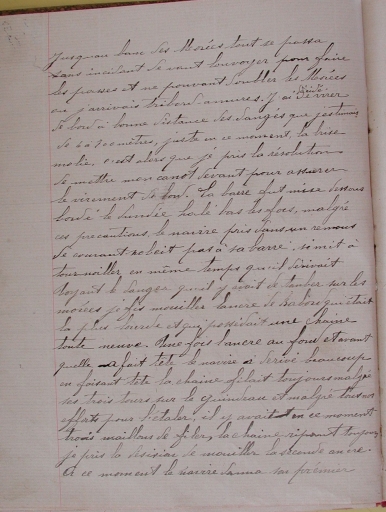 Jusqu'au banc des Morées tout se passa
sans incident devant louvoyer pour faire
les passes et ne pouvant doubler les Morées
ou j'arrivais tribord amures. J'ai décidé de virer
de bord à bonne distance des dangés que j'estimais
de 60 a 70 mètres, juste en ce moment, la brise
molie. c'est alors que je pris la résolution
de mettre mon canot devant pour assurer
le virement de bord. La barre fut mise dessous
bordé le dundée halé bas les focs, malgré
ces precautions, le navire pris dans un remous
de courant nobeit pas à sa barre. si mit à
tournoiller en même temps qu'il dérivait
voyant le danger qu'il y avait de tomber sur les
morées je fis mouiller l'ancre de babord qui était
la plus lourde et qui possédait une chaine
toute neuve. Une fois l'ancre au fond et avant
quelle a fait tête le navire a dérivé beaucoup
en faisant tête la chaine filait toujours malgré
ses trois tours sur le guindeau et malgré tous nos
efforts pour l'étaler, il y avait en ce moment
trois maillons de filer, la chaine ripant toujours
je pris la désision de mouiller la seconde ancre.
et ce moment le navire donna son premier